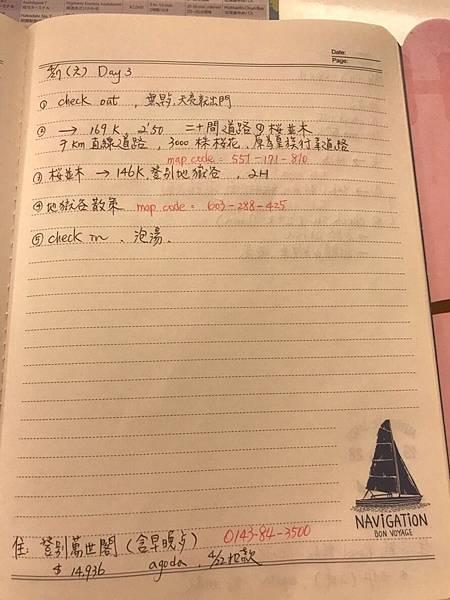 Date:
Page:
(六) Day 3
① check out , 集點, 天亮就出門
② → 169K, 2'50 二十間道路の桜並木
7 km 直線道路, 3000 株桜花, 原為皇族行幸道路
map code = 551-171-810
③ 桜並木 → 146K, 登別地獄谷, 2H
④ 地獄谷散策 map code = 603-288-425
⑤ check in 、泡湯、
NAVIGATION
BON VOYAGE
住: 登別萬世閣 (含早晚夕) 0143-84-3500
$ 14,936 agoda,